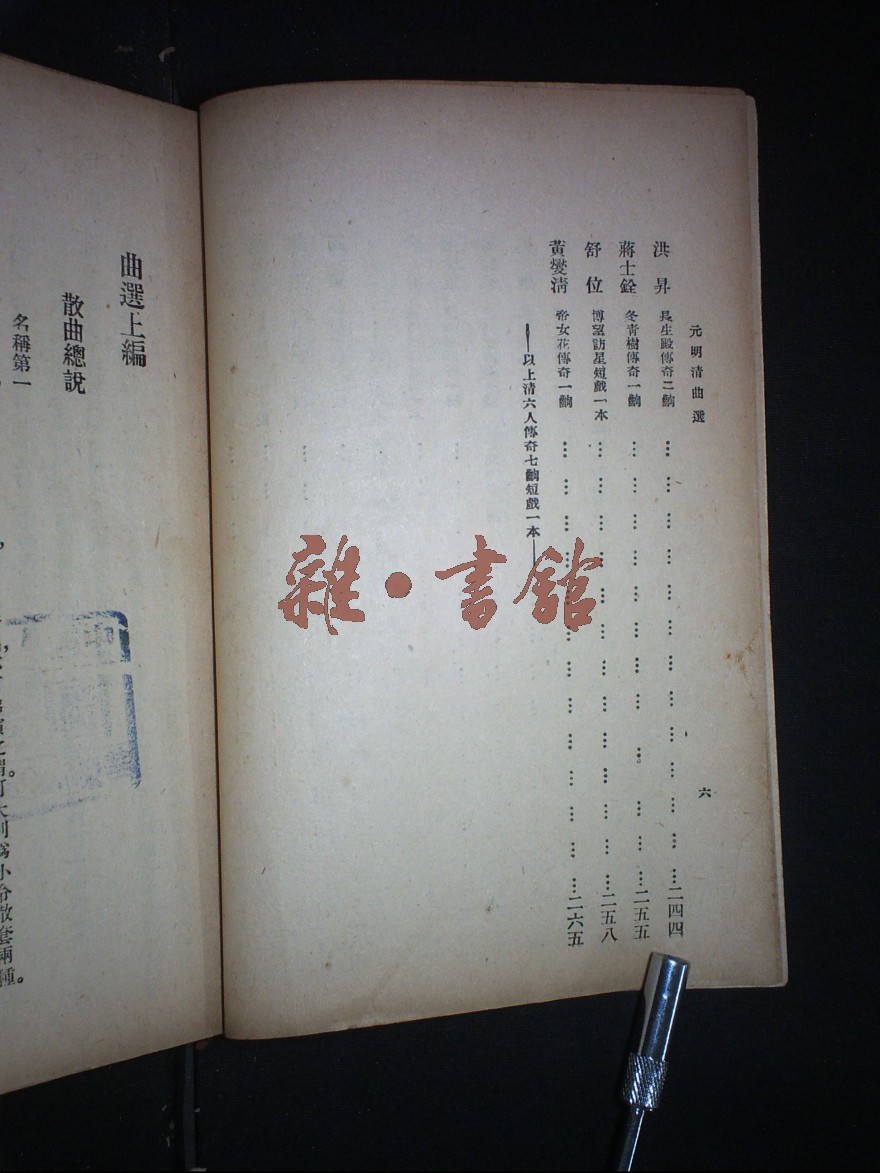 元明清曲選
六
洪昇 長生殿傳奇二齣……二四四
蔣士銓 冬青樹傳奇一齣……二五五
舒位 博望訪星短戲一本……二五八
黃燮清 帝女花傳奇一齣……二六五
——以上清六人傳奇七齣短戲一本——
雜·書館
曲選上編
散曲總說
名稱第一
之謂可大別為小令散套兩種。